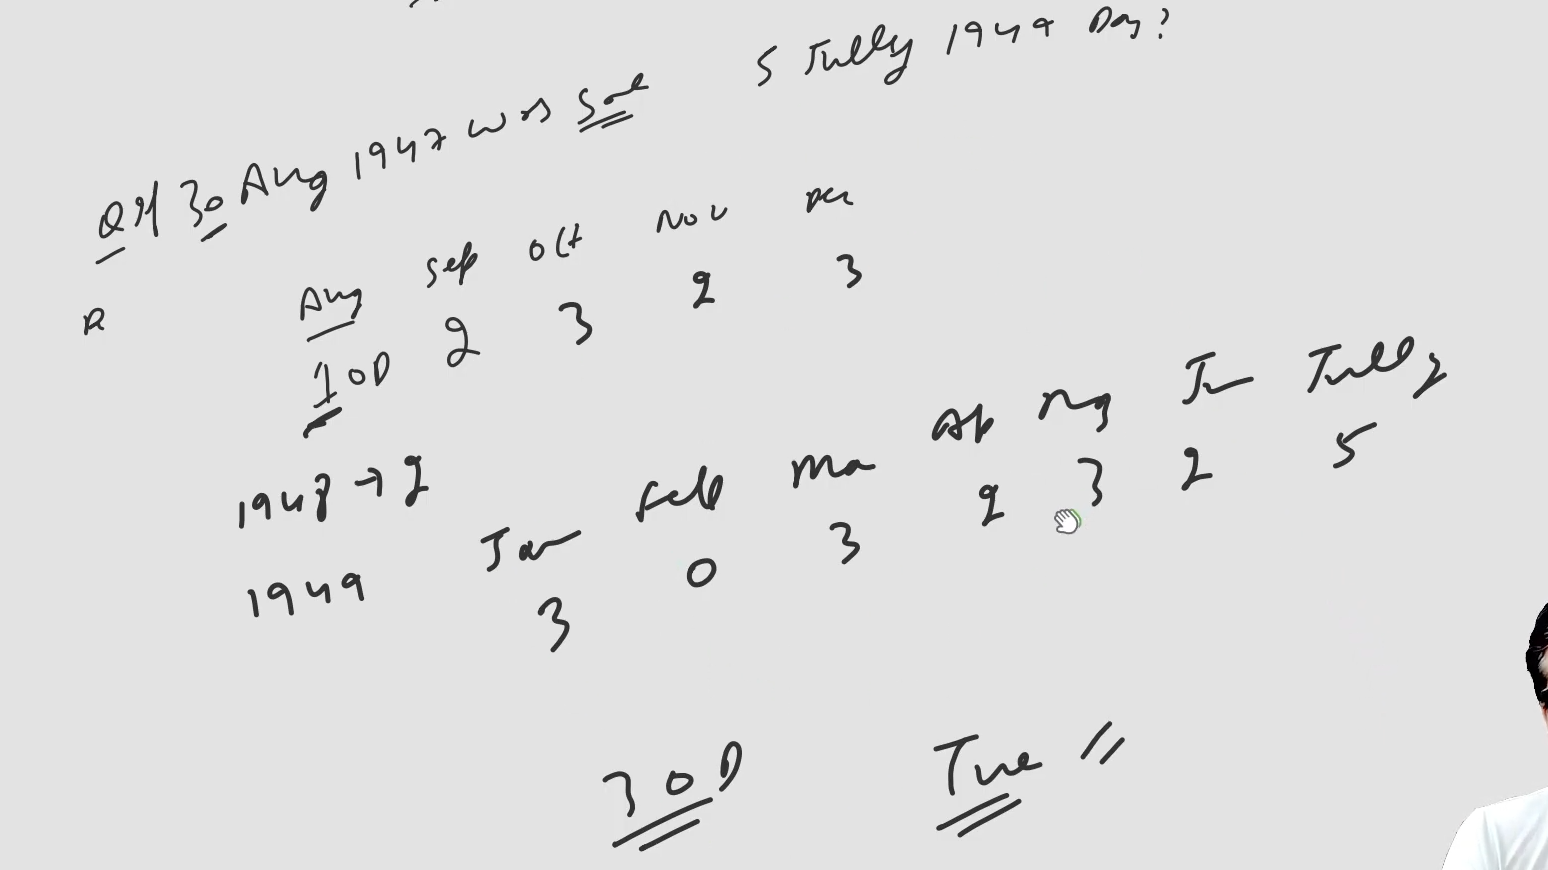 Q If 30 Aug 1947 was Sat 5 Jully 1949 Day?
Aug Sep Oct Nov Dec
1 OD 2 3 2 3
1948 → 2
1949 Jan Feb Ma Ap May Jun Jully
3 0 3 2 3 2 5
3 OD Tue